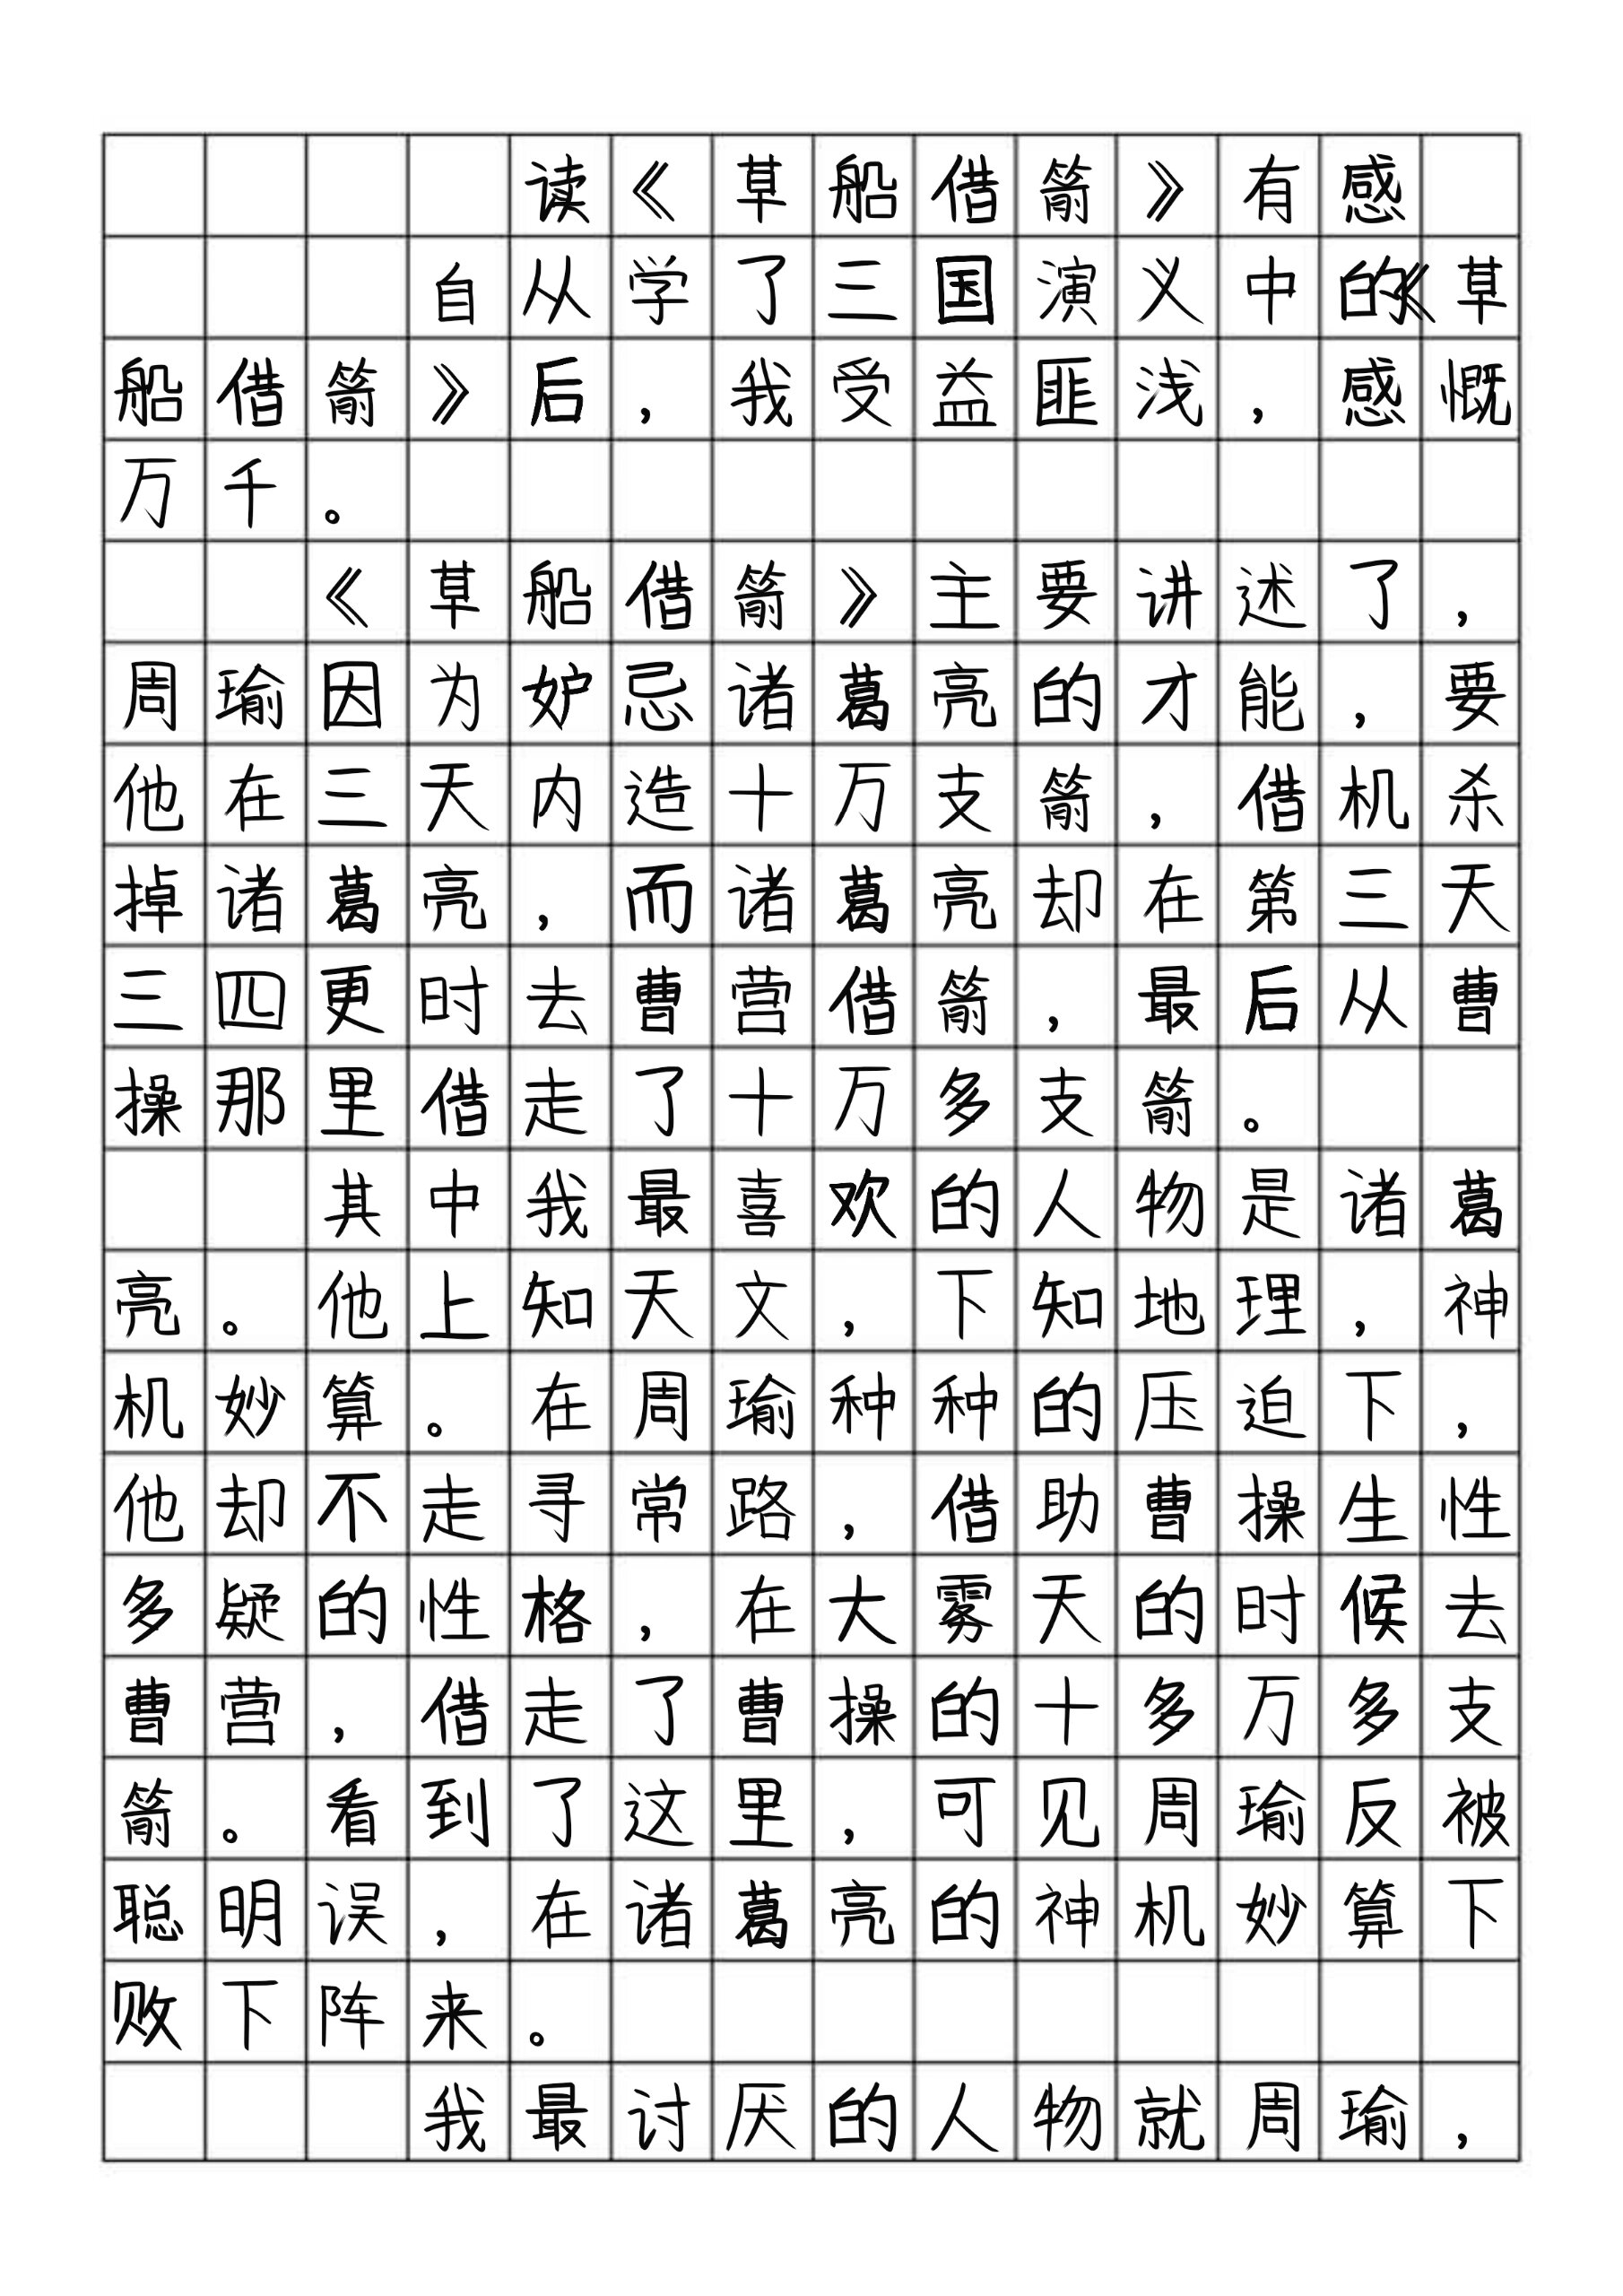 读《草船借箭》有感
自从学了三国演义中的《草
船借箭》后，我受益匪浅，感慨
万千。
《草船借箭》主要讲述了，
周瑜因为妒忌诸葛亮的才能，要
他在三天内造十万支箭，借机杀
掉诸葛亮，而诸葛亮却在第三天
三四更时去曹营借箭，最后从曹
操那里借走了十万多支箭。
其中我最喜欢的人物是诸葛
亮。他上知天文，下知地理，神
机妙算。在周瑜种种的压迫下，
他却不走寻常路，借助曹操生性
多疑的性格，在大雾天的时候去
曹营，借走了曹操的十多万多支
箭。看到了这里，可见周瑜反被
聪明误，在诸葛亮的神机妙算下
败下阵来。
我最讨厌的人物就周瑜，